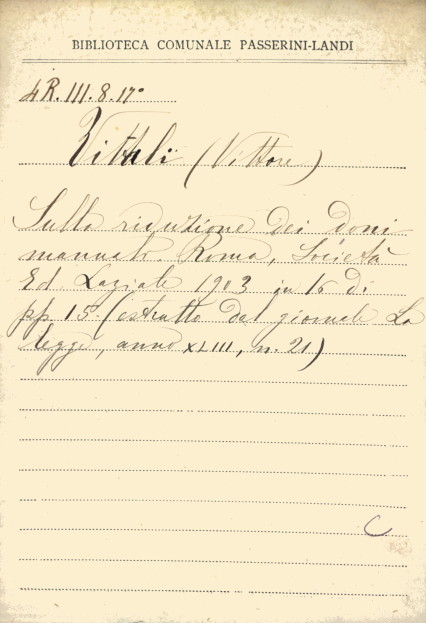 BIBLIOTECA COMUNALE PASSERINI-LANDI
4R.III.8.17°
Vitali (Vittore)
Sulla riduzione dei doni
manuali. Roma, Società
Ed. Laziale 1903 in 16 di
pp. 15 (estratto dal giornale La
legge, anno XLIII, n. 21)
C